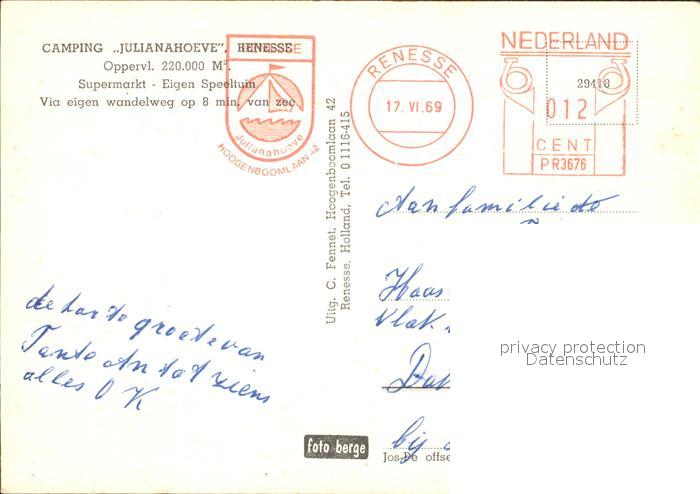 CAMPING „JULIANAHOEVE”, RENESSE
Oppervl. 220.000 M².
Supermarkt - Eigen Speeltuin
Via eigen wandelweg op 8 min. van zee
RENESSE
Julianahoeve
HOOGENBOOMLAAN 42
RENESSE
17. VI. 69
NEDERLAND
29418
012
CENT
PR3676
Uitg. C. Fennet, Hoogenboomlaan 42
Renesse, Holland, Tel. 01116-415
Aan familie de
Haas
Vlak.
bij
de harte groete van
Tante An tot ziens
alles O K
privacy protection
Datenschutz
foto berge
Jos-Pe offse